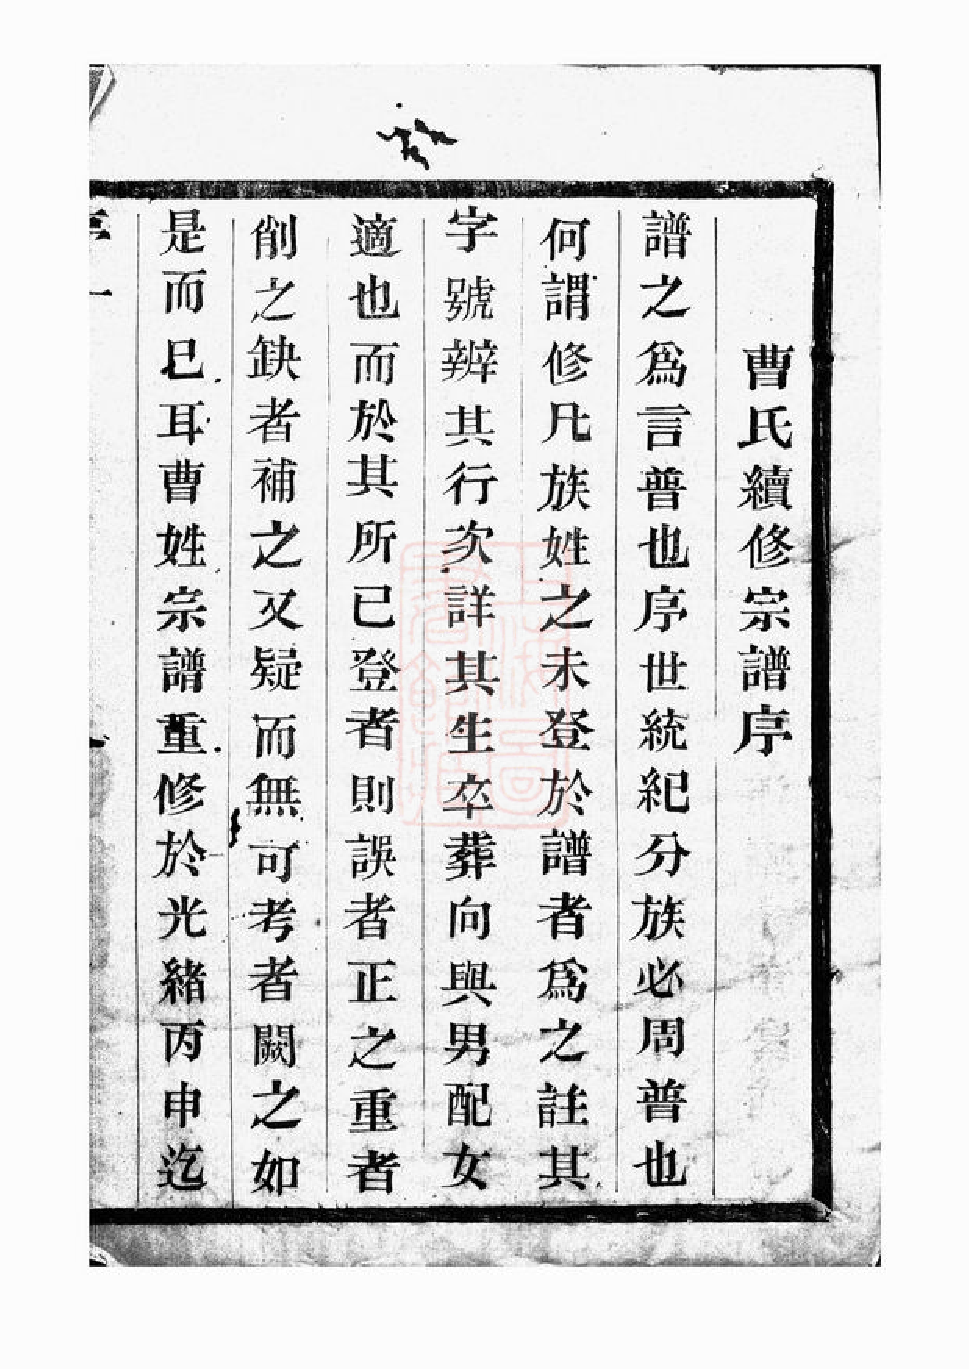 曹氏續修宗譜序
譜之爲言普也序世統紀分族必周普也
何謂修凡族姓之未登於譜者爲之註其
字號辨其行次詳其生卒葬向與男配女
適也而於其所已登者則誤者正之重者
削之缺者補之又疑而無可考者闕之如
是而已耳曹姓宗譜重修於光緒丙申迄